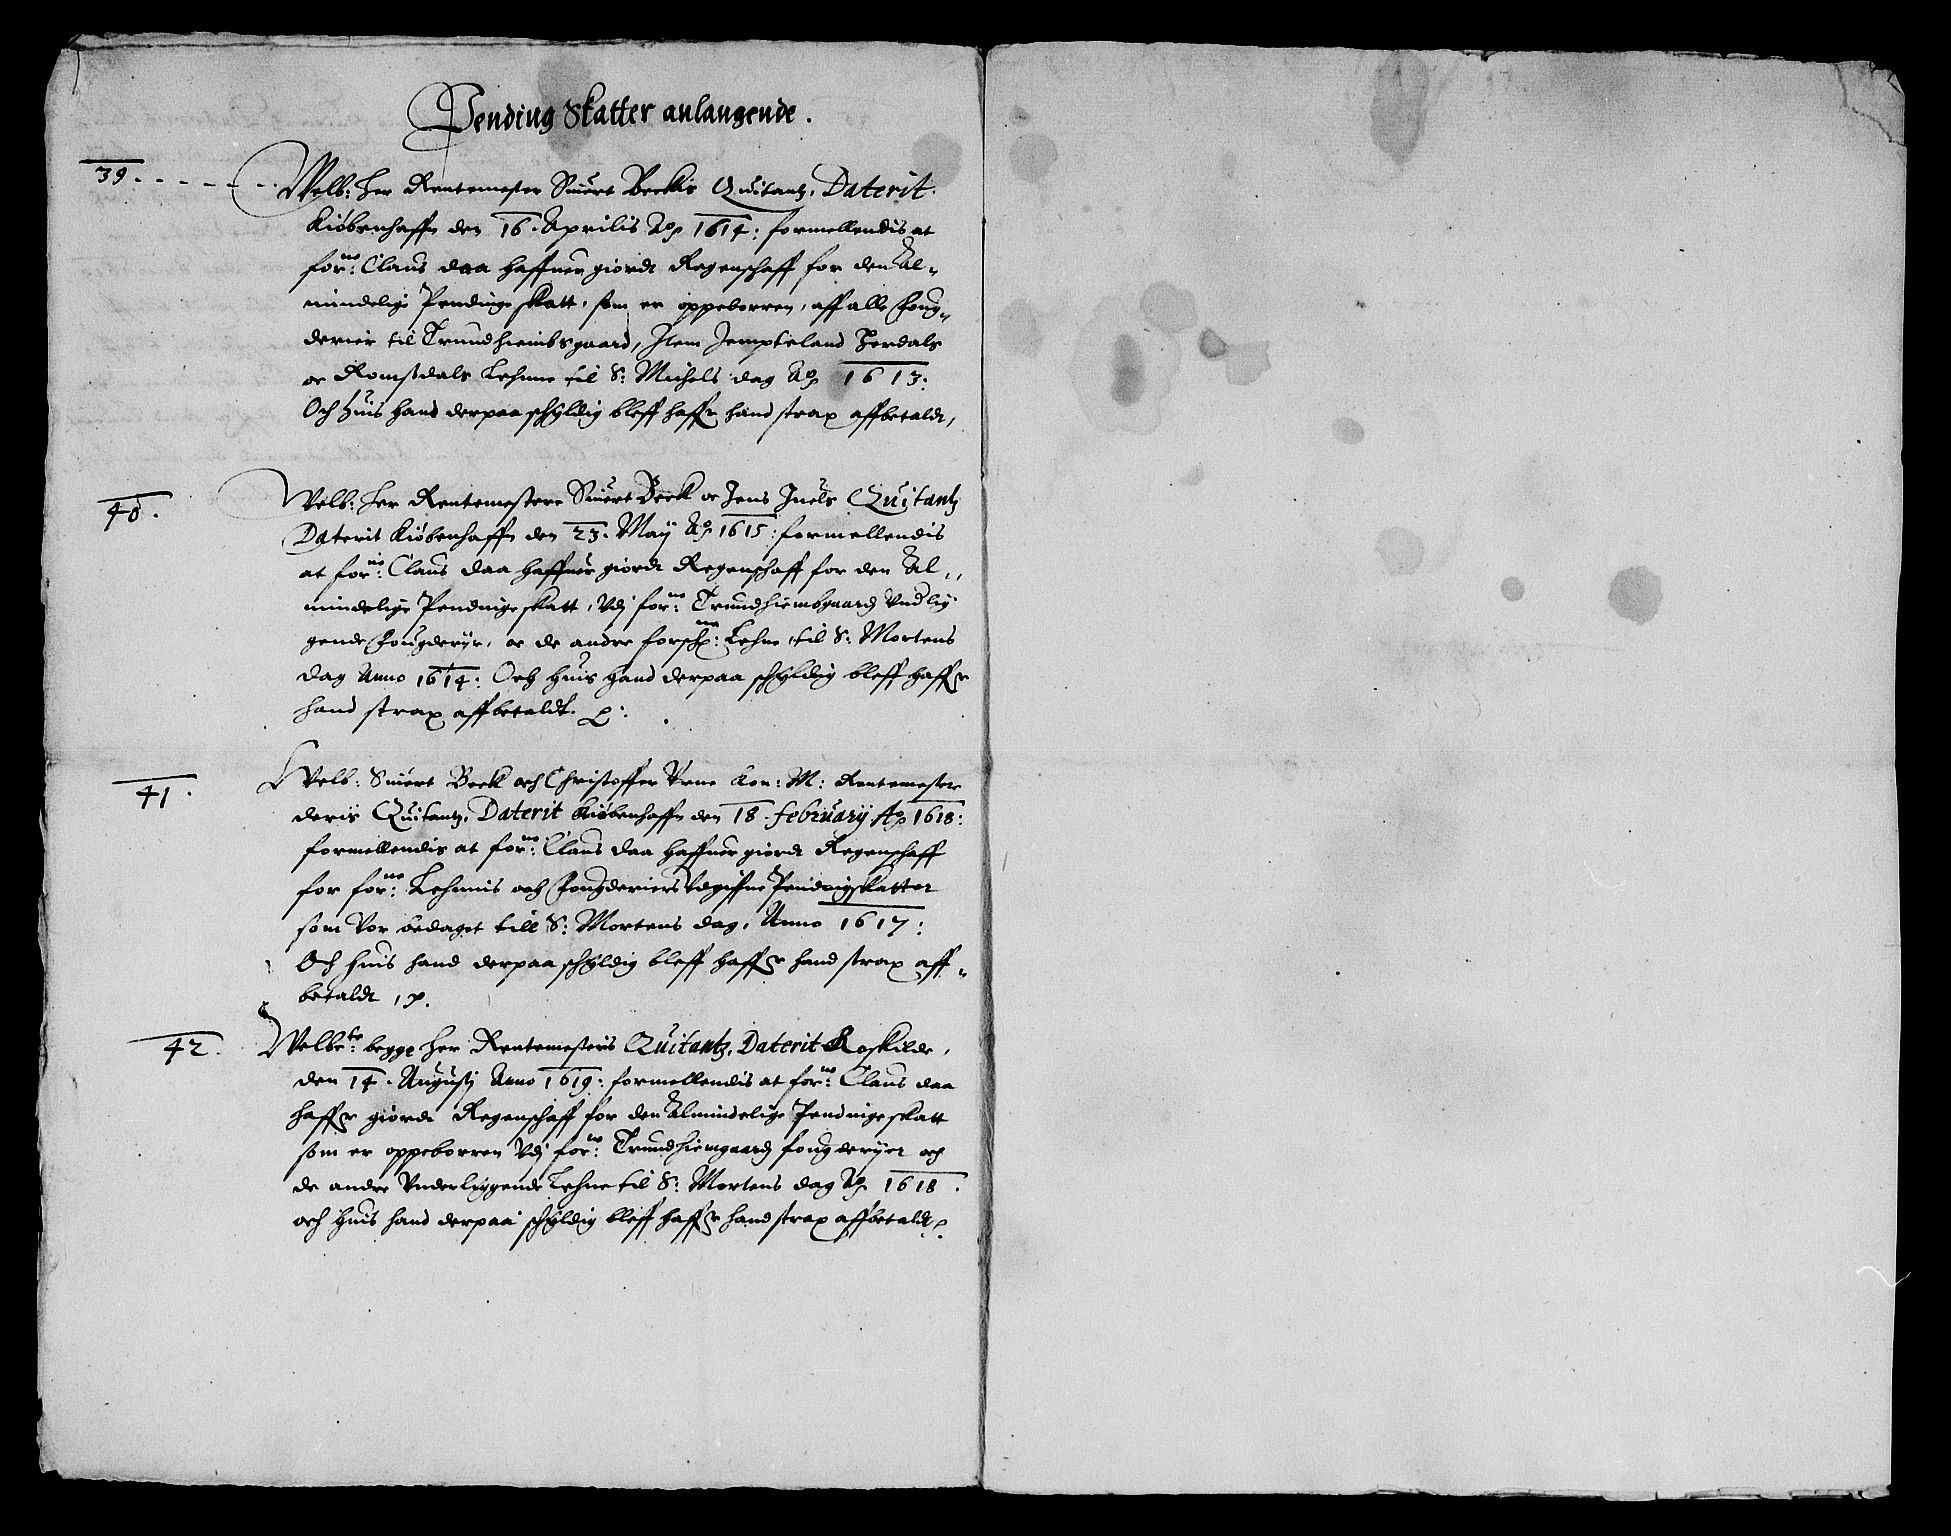 Pending Skatter anlangende.
39. Welb: Her Rentemester Siuert Beckis Quitantz, Daterit
Kiøbenhaffn den 16. Aprilis Aō 1614: formellendis at
forne: Claus daa haffuer giordt Regenschaff for den Al-
mindelige Pendinge skatt, som er oppeborren, aff alle Foug-
derier til Trundhiembsgaard, Item Jempteland Herdals
oc Romsdals Lehnne til S: Michels dag Aō 1613:
Och huis hand derpaa schyldig bleff haffr hand strax affbetaldt,
40. Welb: Her Rentemestere Siuert Beck oc Jens Juels Quitantz
Daterit Kiøbenhaffn den 23. Maij Aō 1615: formellendis
at forne: Claus daa haffuer giordt Regenschaff for den Al-
mindelige Pendinge skatt, Vdj forne: Trundhiembgaards Vndlig
gende Fougderije, oc de andre forschne: Lehne, til S: Mortens
dag Anno 1614: Och huis hand derpaa schyldig bleff haffr
hand strax affbetaldt.
41. Welb: Siuert Beck och Christoffer Vrne Kon: M: Rentemester
deris Quitantz, Daterit Kiøbenhaffn den 18. februarij Aō 1618:
formellendis at forne: Claus daa haffuer giordt Regenschaff
for forne: Lehnnis och Fougderiers Vdgiffne Pendingskatter
som Vor bedaget till S: Mortens dag, Anno 1617:
Och huis hand derpaa schyldig bleff haffr hand strax aff-
betaldt
42. Welbte: begge Her Rentemesteris Quitantz, Daterit Roskilde,
den 14. Augustj Anno 1619: formellendis at forne: Claus daa
haffr giordt Regenschaff for den Almindelige Pendinge skatt
som er oppeborren Vdj forne: Trundhiemgaards fougderijer och
de andre Vnderliggende Lehne til S: Mortens dag Aō 1618.
och huis hand derpaa schyldig bleff haffr hand strax affbetaldt